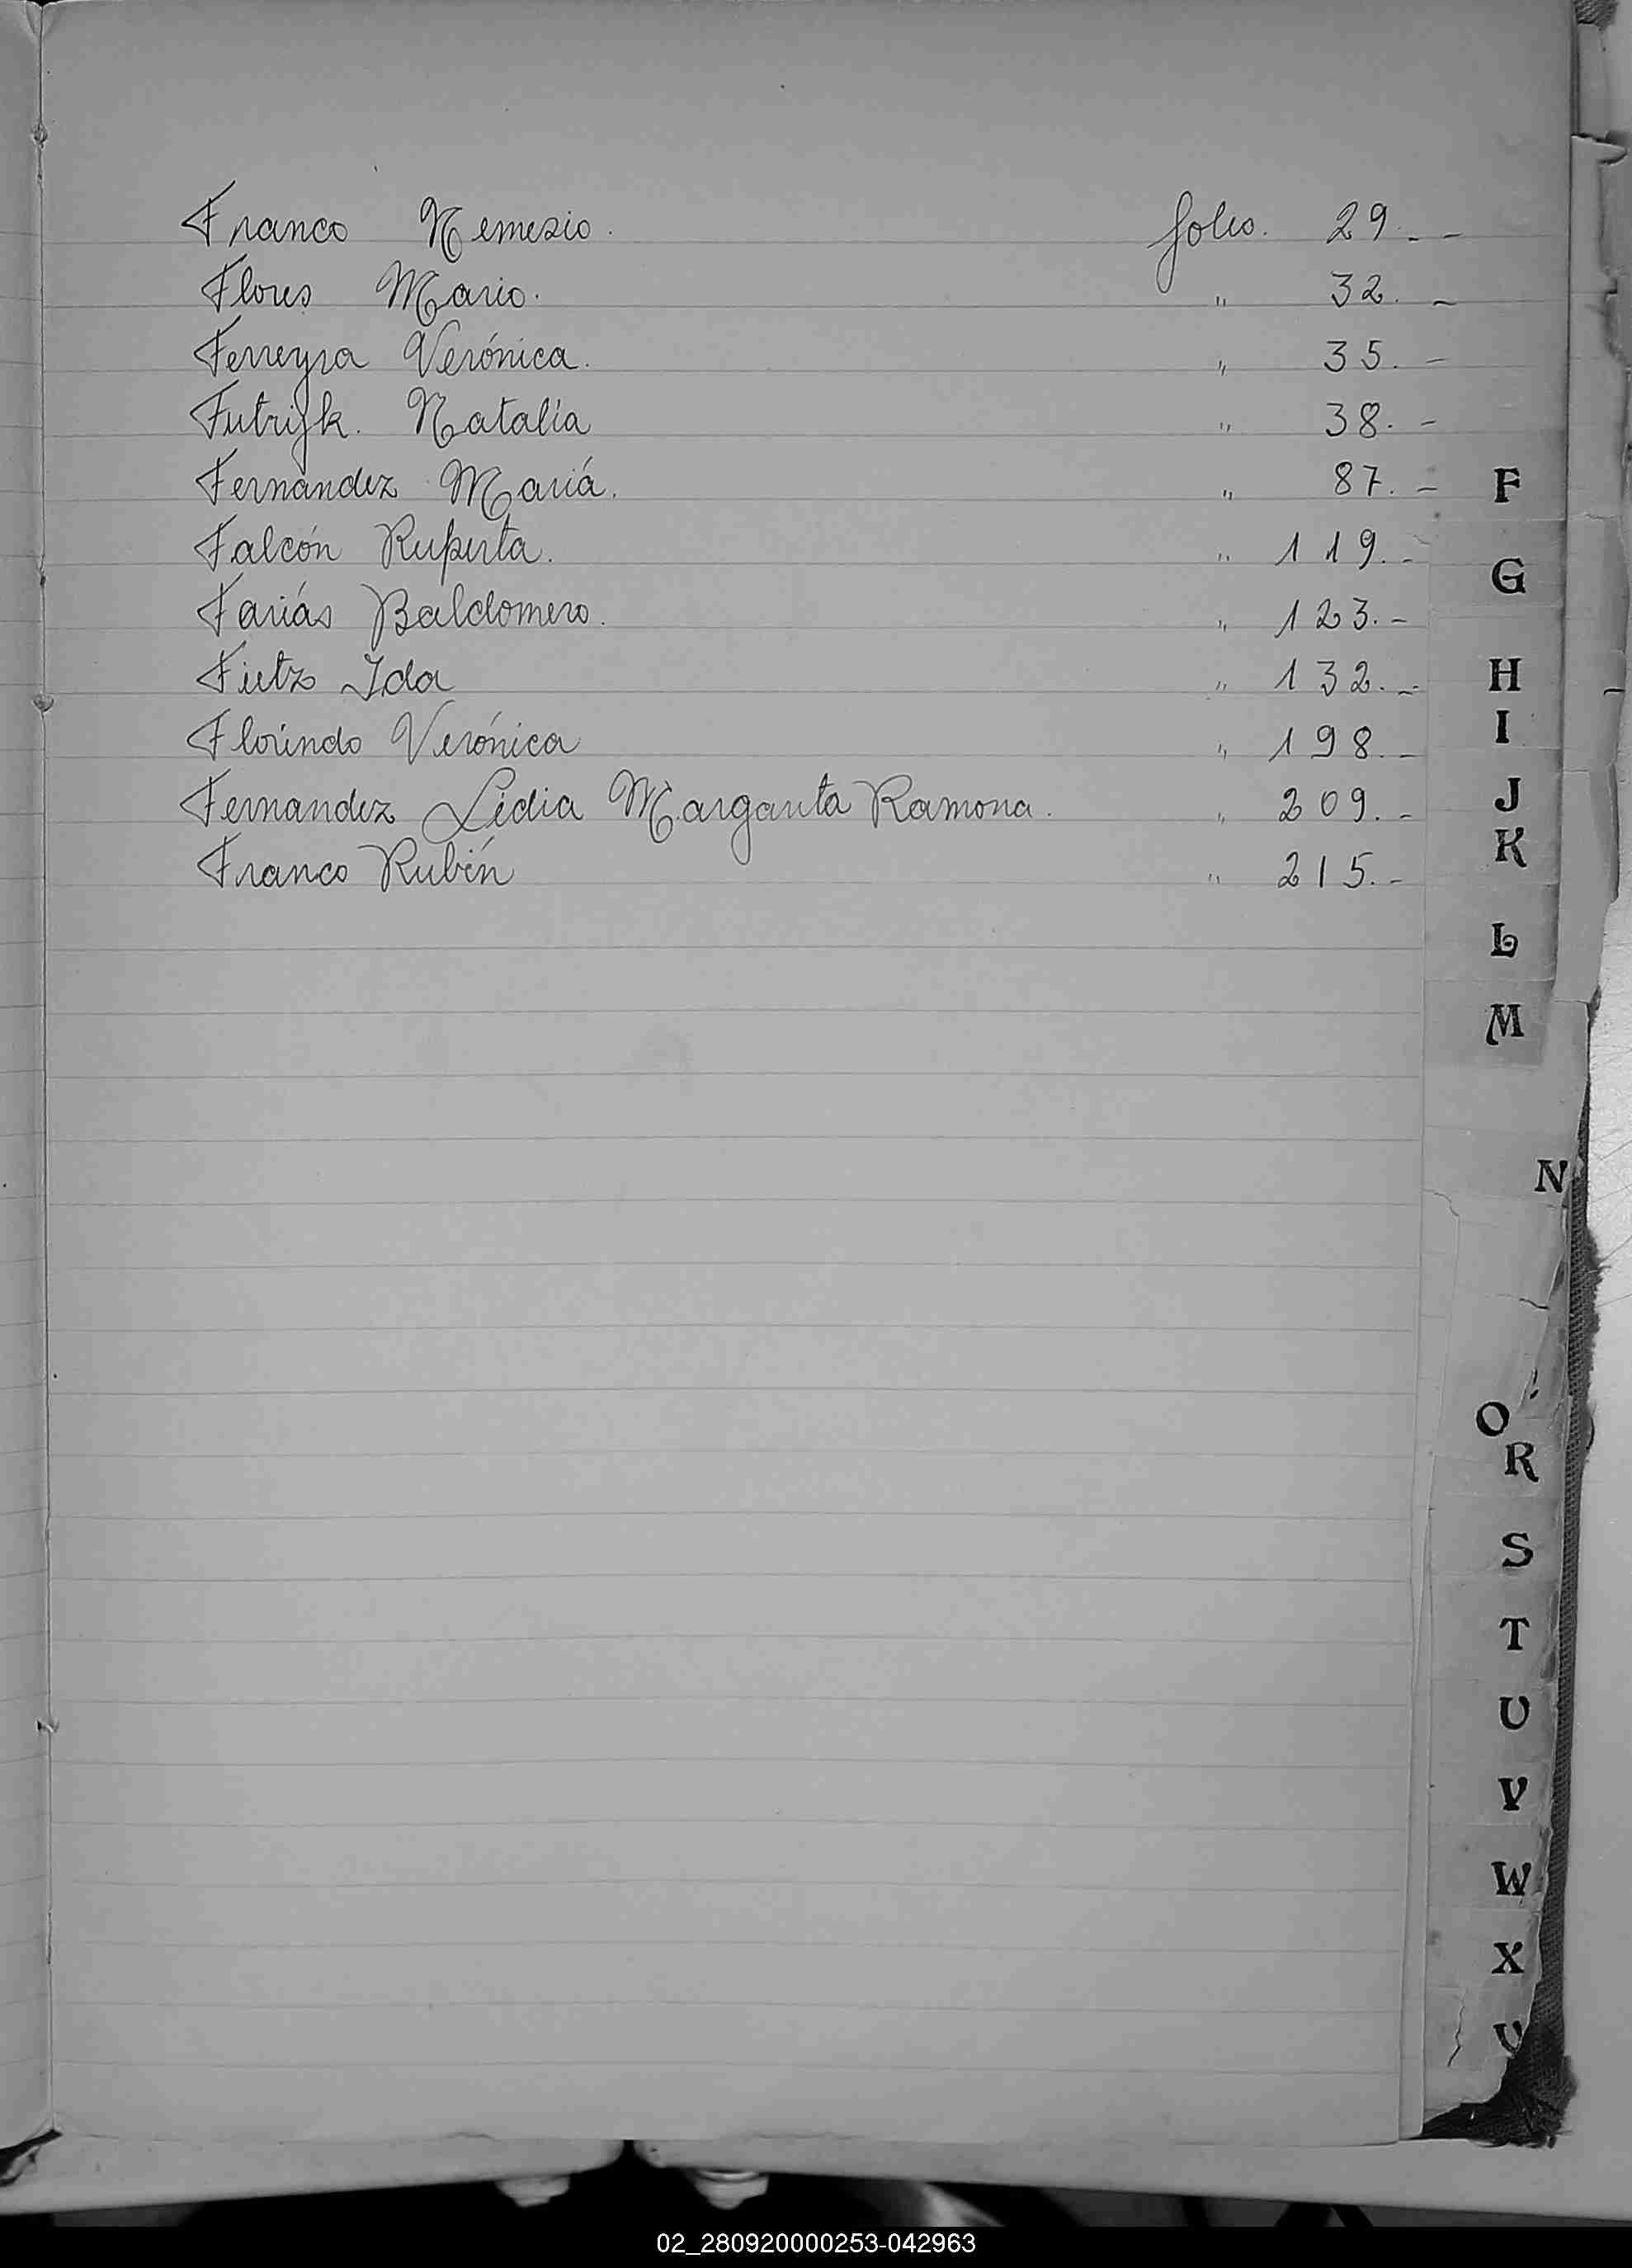 Franco Nemesio. folio. 29.--
Flores Mario. " 32.-
Ferreyra Verónica. " 35.-
Futrijk. Natalia " 38.-
Fernández Mariá. " 87.-
Falcón Ruperta. " 119.-
Fariás Baldomero. " 123.-
Fietz Ida " 132.-
Florindo Verónica " 198.-
Fernandez Lidia Margarita Ramona. " 209.-
Franco Rubén " 215.-
F
G
H
I
J
K
L
M
N
O
R
S
T
U
V
W
X
02_280920000253-042963